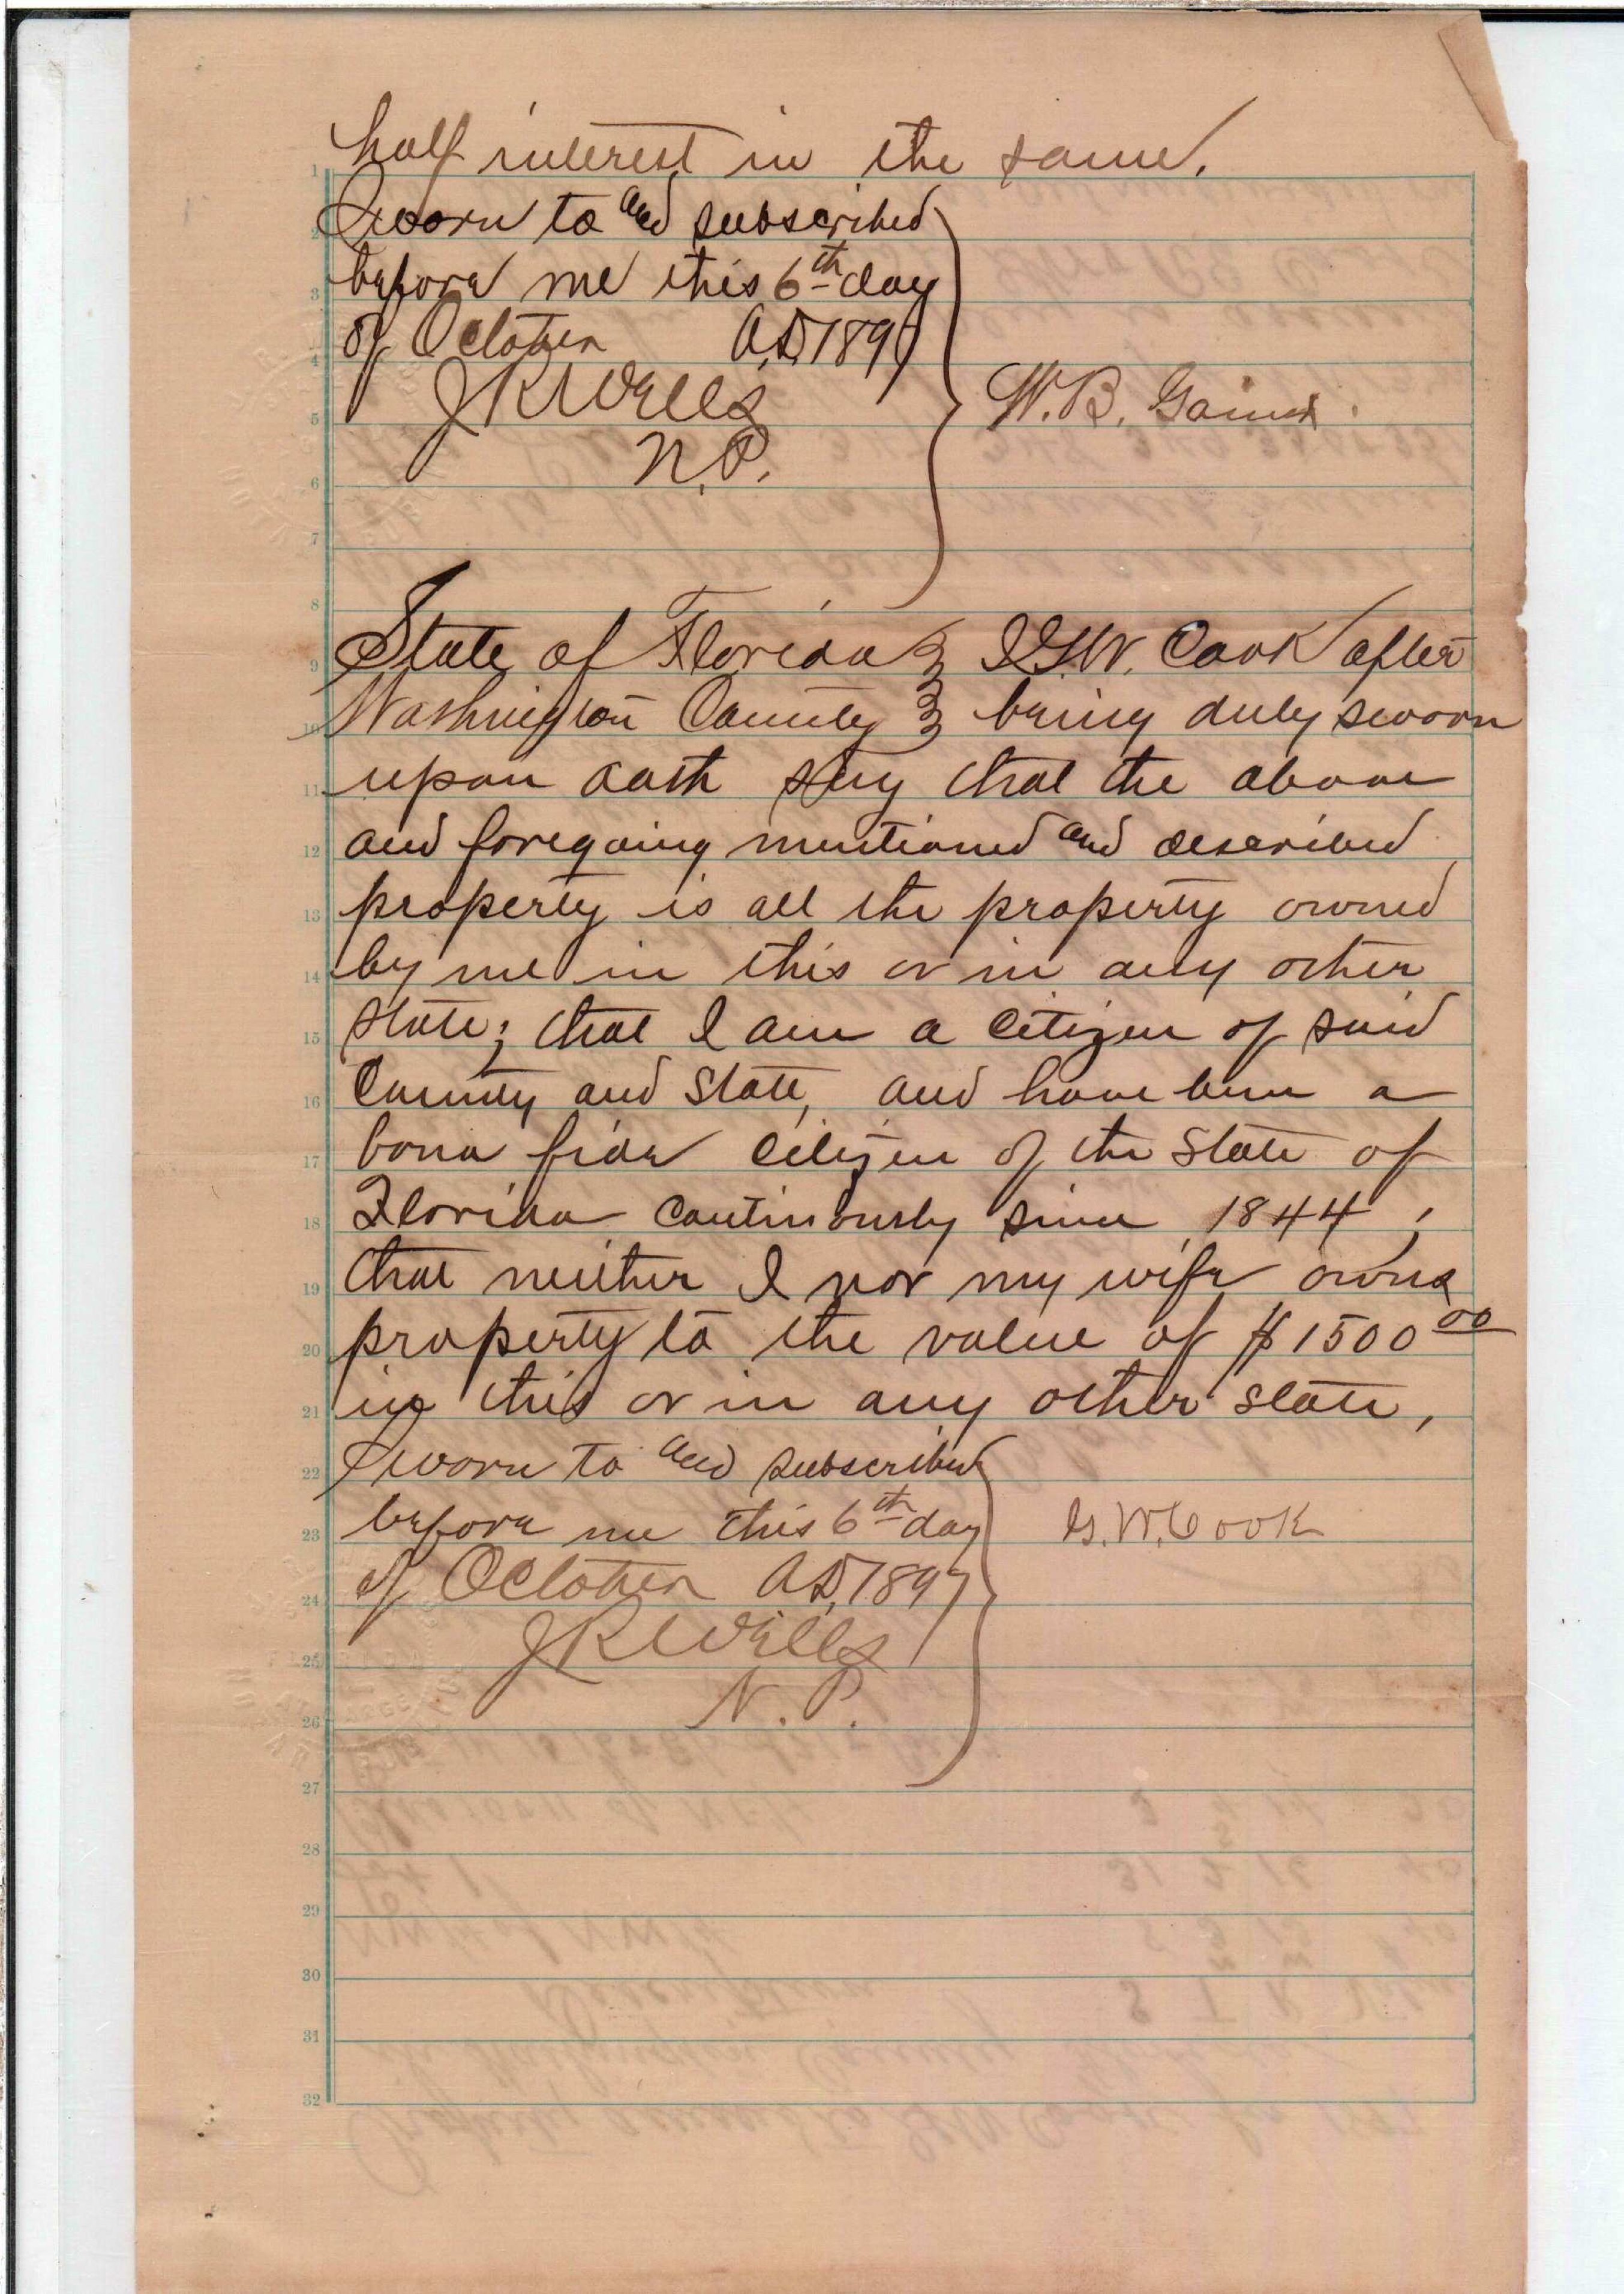 half interest in the same.
Sworn to and subscribed
before me this 6th day
of October A.D. 1897
J R Wells
N.P.
W.B. Gainer
State of Florida } I G.W. Cook after
Washington County } being duly sworn
upon oath say that the above
and foregoing mentioned and described
property is all the property owned
by me in this or in any other
state; that I am a citizen of said
County and State, and have been a
bona fide citizen of the State of
Florida continously since 1844;
that neither I nor my wife owns
property to the value of $1500 00
in this or in any other state,
Sworn to and subscribed
before me this 6th day
of October A.D. 1897
J R Wells
N. P.
G. W. Cook
1
2
3
4
5
6
7
8
9
10
11
12
13
14
15
16
17
18
19
20
21
22
23
24
25
26
27
28
29
30
31
32